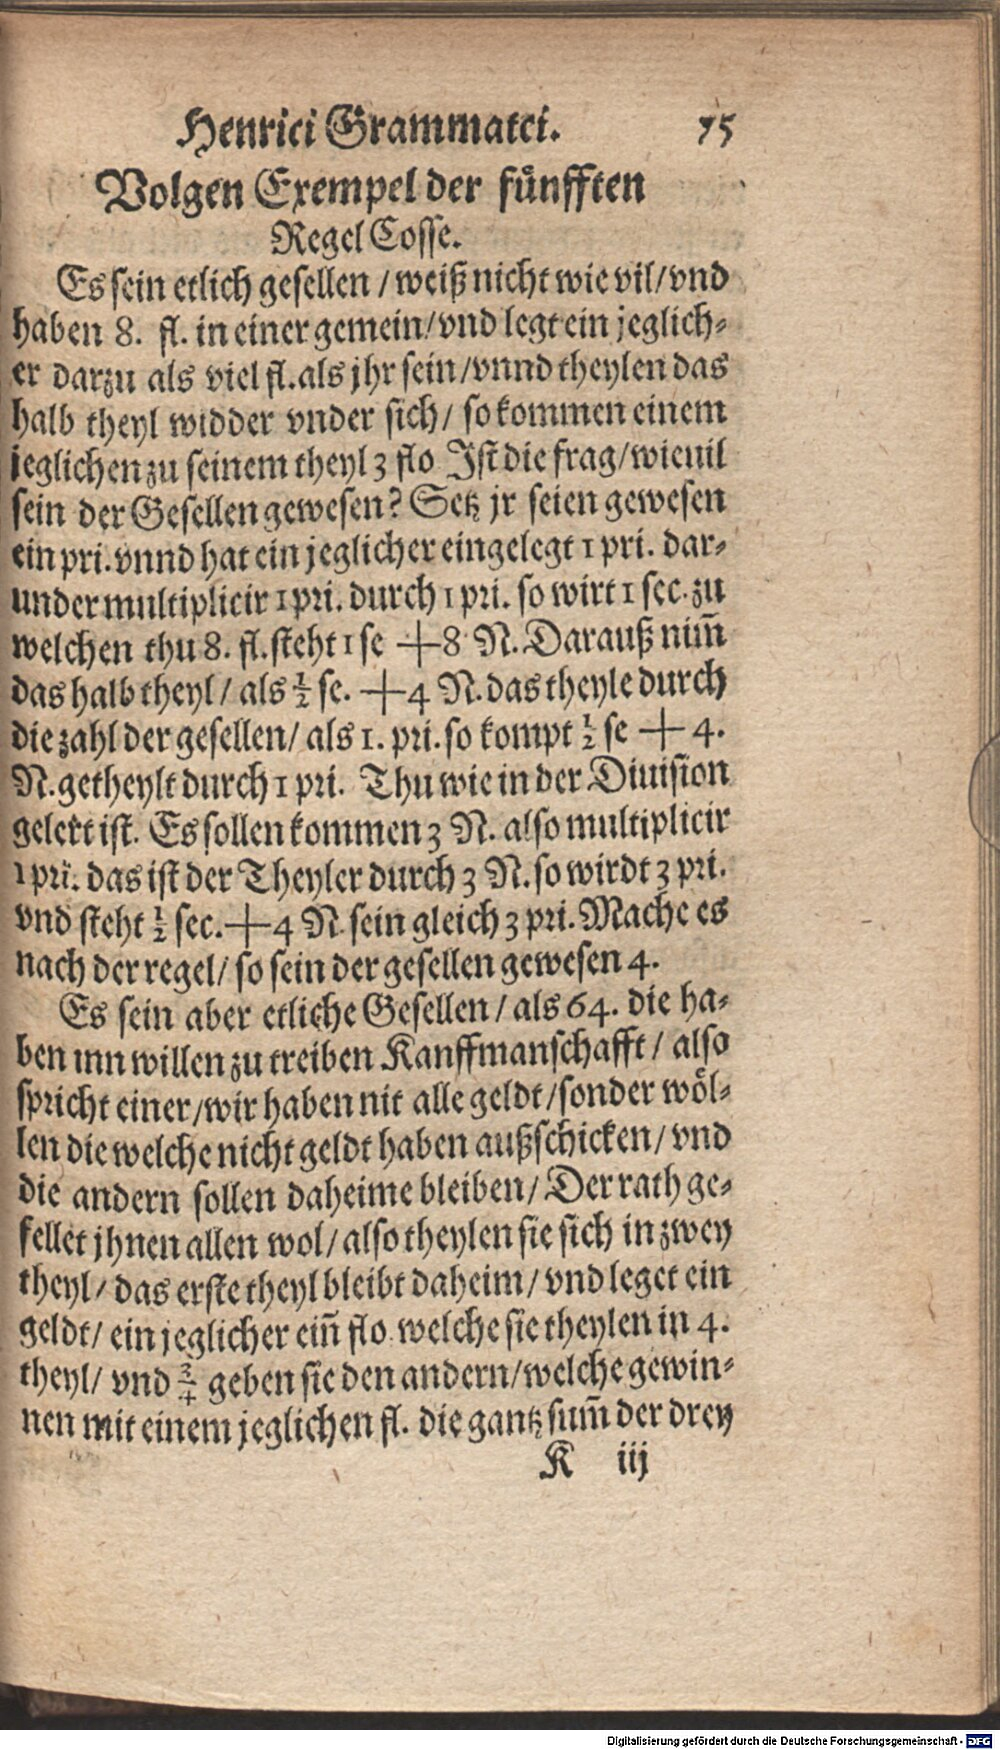 Henrici Grammatei. 75
Volgen Exempel der fünfften
Regel Cosse.
Es sein etlich gesellen / weiß nicht wie vil / vnd
haben 8. fl. in einer gemein / vnd legt ein jeglich-
er darzu als viel fl. als jhr sein / vnnd theylen das
halb theyl widder vnder sich / so kommen einem
jeglichen zu seinem theyl 3 flo Ist die frag / wieuil
sein der Gesellen gewesen? Setz jr seien gewesen
ein pri. vnnd hat ein jeglicher eingelegt 1 pri. dar-
under multiplicir 1 pri. durch 1 pri. so wirt 1 sec. zu
welchen thu 8. fl. steht 1 se + 8 N. Darauß nim̃
das halb theyl / als ½ se. + 4 N. das theyle durch
die zahl der gesellen / als 1. pri. so kompt ½ se + 4.
N. getheylt durch 1 pri. Thu wie in der Diuision
gelert ist. Es sollen kommen 3 N. also multiplicir
1 pri. das ist der Theyler durch 3 N. so wirdt 3 pri.
vnd steht ½ sec. + 4 N sein gleich 3 pri. Mache es
nach der regel / so sein der gesellen gewesen 4.
Es sein aber etliche Gesellen / als 64. die ha-
ben inn willen zu treiben Kauffmanschafft / also
spricht einer / wir haben nit alle geldt / sonder wöl-
len die welche nicht geldt haben außschicken / vnd
die andern sollen daheime bleiben / Der rath ge-
fellet jhnen allen wol / also theylen sie sich in zwey
theyl / das erste theyl bleibt daheim / vnd leget ein
geldt / ein jeglicher ein̄ flo. welche sie theylen in 4.
theyl / vnd ¾ geben sie den andern / welche gewin-
nen mit einem jeglichen fl. die gantz sum̃ der drey
K iij
Digitalisierung gefördert durch die Deutsche Forschungsgemeinschaft - DFG